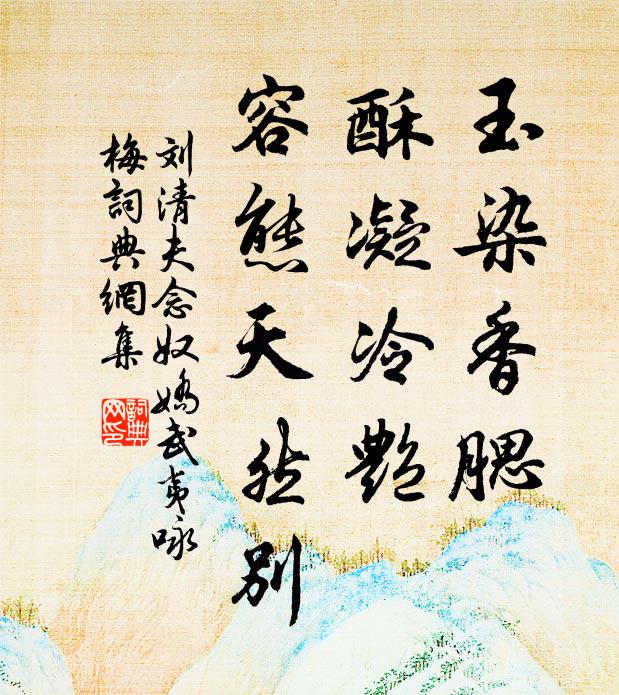 玉染香腮
酥凝冷艷
容態天然別
刘清夫念奴娇武夷咏
梅詞典網集
詞典
网印